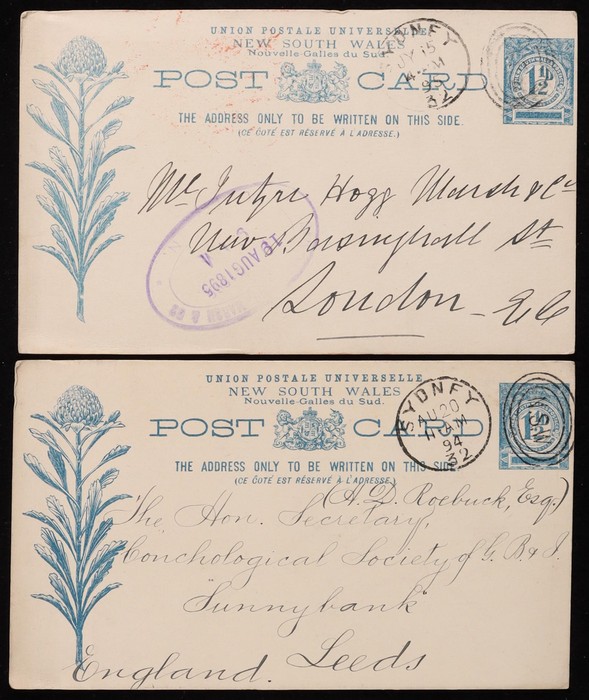 UNION POSTALE UNIVERSELLE
NEW SOUTH WALES
Nouvelle-Galles du Sud.
POST CARD
THE ADDRESS ONLY TO BE WRITTEN ON THIS SIDE.
(CE CÔTÉ EST RÉSERVÉ À L'ADRESSE.)
SYDNEY
JY 15
95
32
1½D
McIntyre Hogg Marsh & Co
New Basinghall St
London E.C
19 AUG 1895
A
UNION POSTALE UNIVERSELLE
NEW SOUTH WALES
Nouvelle-Galles du Sud.
POST CARD
THE ADDRESS ONLY TO BE WRITTEN ON THIS SIDE
(CE CÔTÉ EST RÉSERVÉ À L'ADRESSE.)
SYDNEY
AU 20
11 AM
94
32
NSW
(A. D. Roebuck, Esq.)
The Hon. Secretary,
Conchological Society of G. B. & I.
"Sunnybank"
Leeds
England.